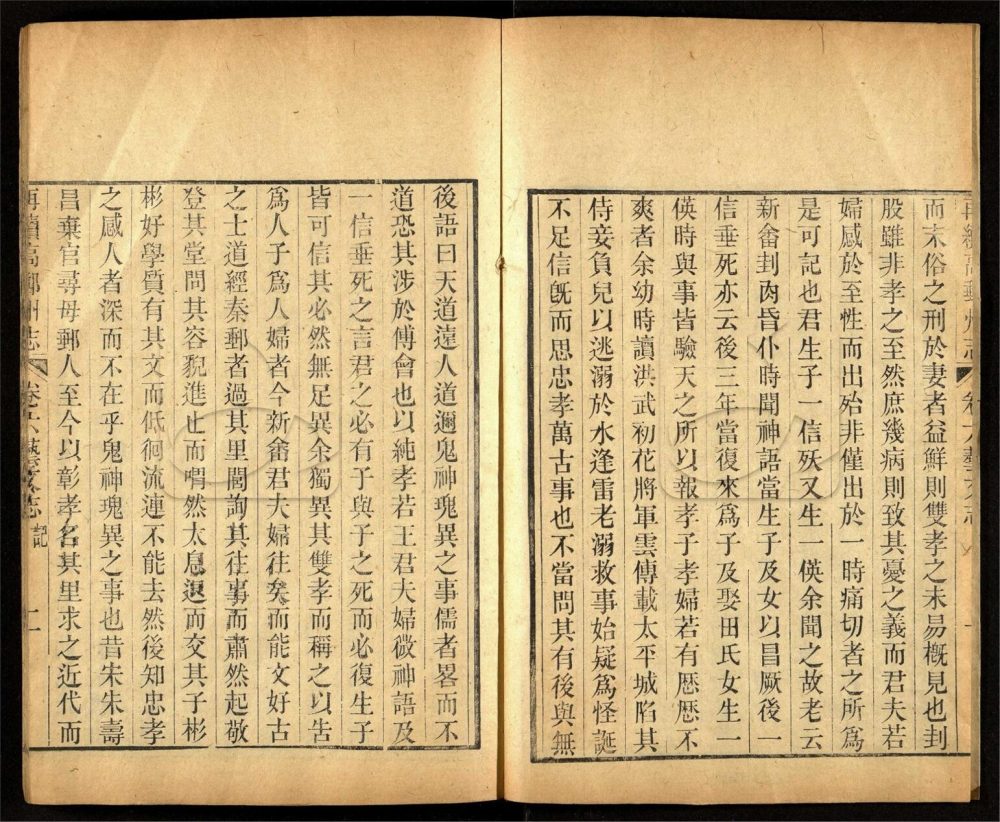 再續高郵州志 卷六藝文志
而末俗之刑於妻者益鮮則雙孝之未易槪見也刲
股雖非孝之至然庶幾病則致其憂之義而君夫若
婦感於至性而出殆非僅出於一時痛切者之所爲
是可記也君生子一信殀又生一偀余聞之故老云
新畬刲肉昏仆時聞神語當生子及女以昌厥後一
信垂死亦云後三年當復來爲子及娶田氏女生一
偀時與事皆驗天之所以報孝子孝婦若有厯厯不
爽者余幼時讀洪武初花將軍雲傳載太平城陷其
侍妾負兒以逃溺於水逢雷老溺救事始疑爲怪誕
不足信旣而思忠孝萬古事也不當問其有後與無
後語曰天道遠人道邇鬼神瑰異之事儒者畧而不
道恐其涉於傅會也以純孝若王君夫婦微神語及
一信垂死之言君之必有子與子之死而必復生子
皆可信其必然無足異余獨異其雙孝而稱之以告
爲人子爲人婦者今新畬君夫婦往矣而能文好古
之士道經秦郵者過其里閭詢其往事而肅然起敬
登其堂問其容貌進止而喟然太息退而交其子彬
彬好學質有其文而低徊流連不能去然後知忠孝
之感人者深而不在乎鬼神瑰異之事也昔朱朱壽
昌棄官尋母郵人至今以彰孝名其里求之近代而
再續高郵州志 卷六藝文志 記 二